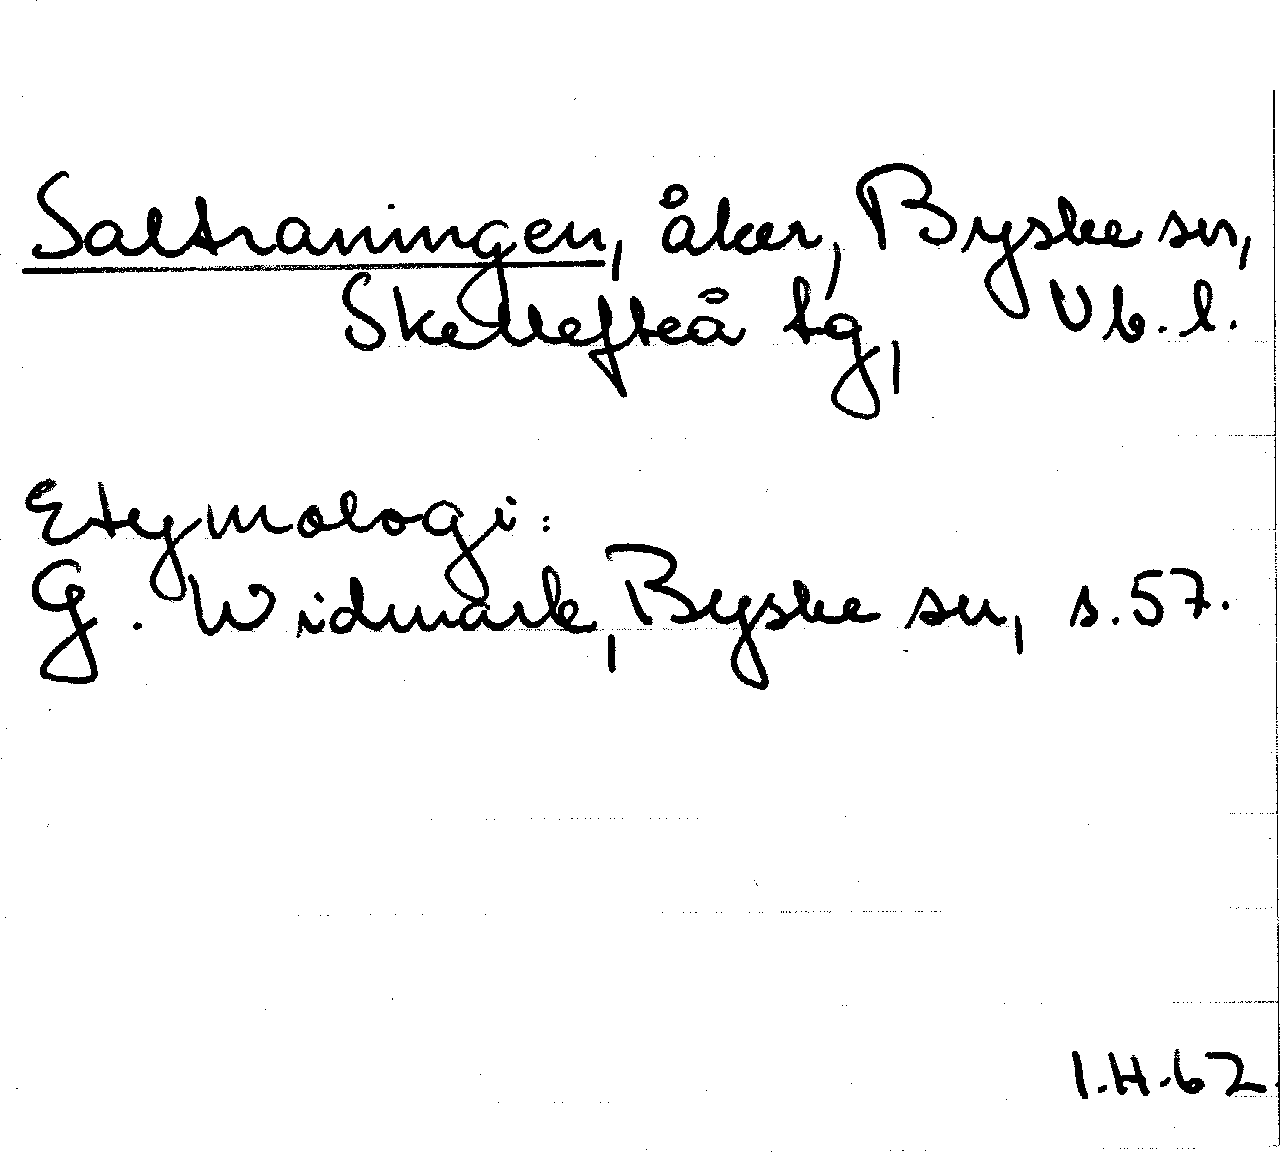 Saltraningen, åker, Byske sn,
Skellefteå tg, Vb. l.
Etymologi:
G. Widmark, Byske sn, s. 57.
I.H.62.